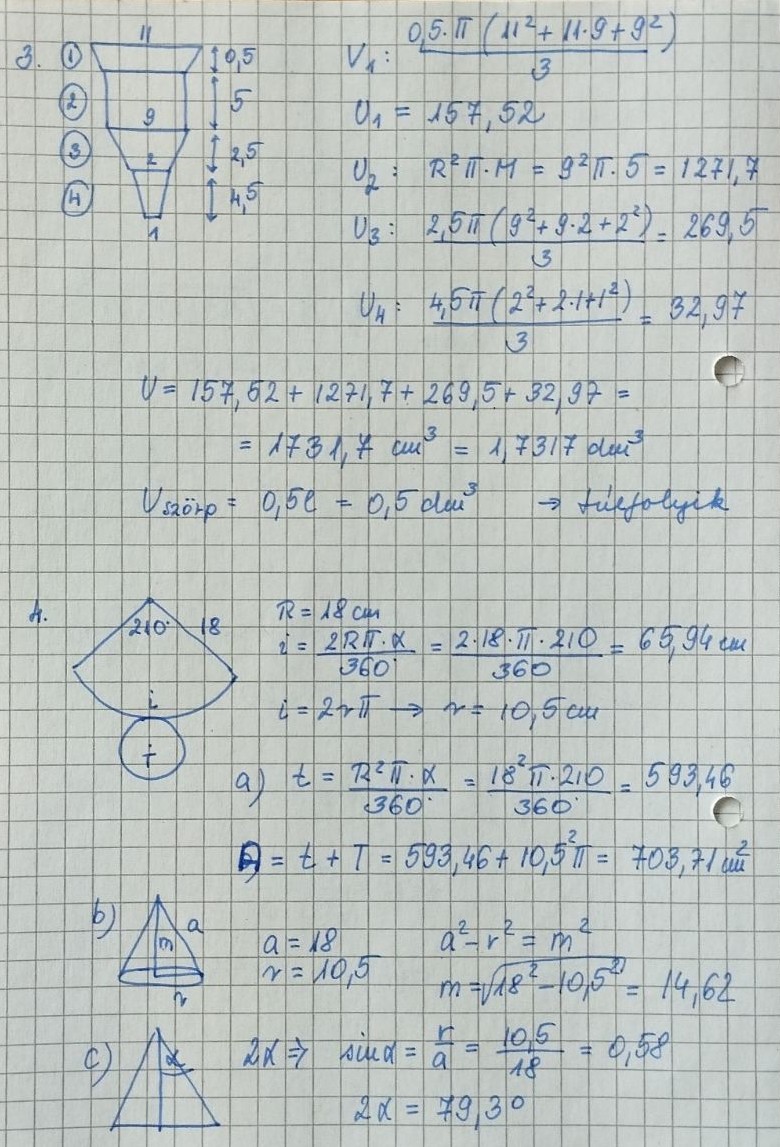 3.
① 11 0,5
② 9 5
③ 2 2,5
④ 1 4,5
V₁: 0,5·π (11² + 11·9 + 9²) / 3
V₁ = 157,52
V₂: R²π·M = 9²π·5 = 1271,7
V₃: 2,5π (9² + 9·2 + 2²) / 3 = 269,5
V₄: 4,5π (2² + 2·1 + 1²) / 3 = 32,97
V = 157,52 + 1271,7 + 269,5 + 32,97 =
= 1731,7 cm³ = 1,7317 dm³
Vszörp = 0,5l = 0,5 dm³ → túlfolyik
4.
210° 18
i
R = 18 cm
i = 2Rπ·α / 360° = 2·18·π·210 / 360 = 65,94 cm
i = 2rπ → r = 10,5 cm
a) t = R²π·α / 360° = 18²π·210 / 360° = 593,46
A = t + T = 593,46 + 10,5²π = 703,71 cm²
b) a m r
a = 18
r = 10,5
a² - r² = m²
m = √(18² - 10,5²) = 14,62
c) α 2α ⇒ sinα = r / a = 10,5 / 18 = 0,58
2α = 79,3°